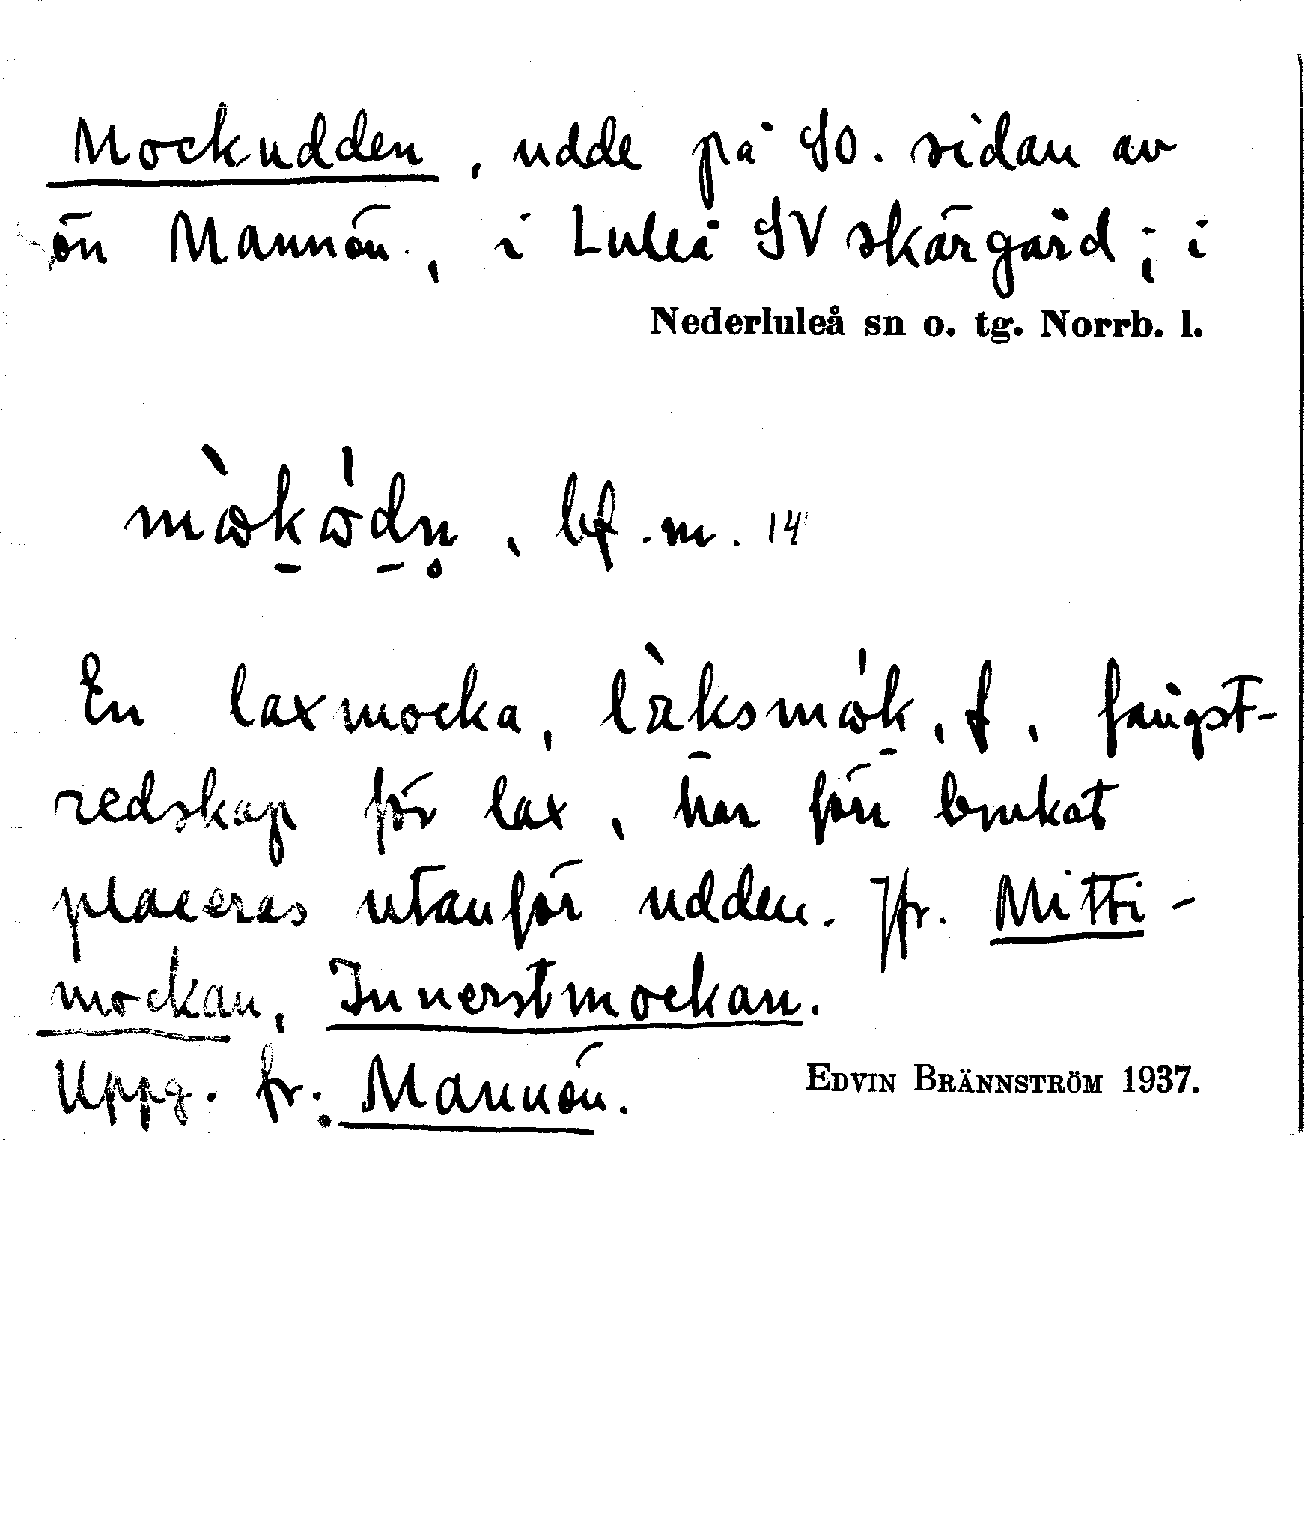 Mockudden, udde på SO. sidan av
ön Mannön, i Luleå SV skärgård; i
Nederluleå sn o. tg. Norrb. l.
bf. m. 14
En laxmocka, f. fångst-
redskap för lax, har förr brukat
placeras utanför udden. Jfr. Mitti-
mockan, Innerstmockan.
Uppg. fr. Mannön.
EDVIN BRÄNNSTRÖM 1937.